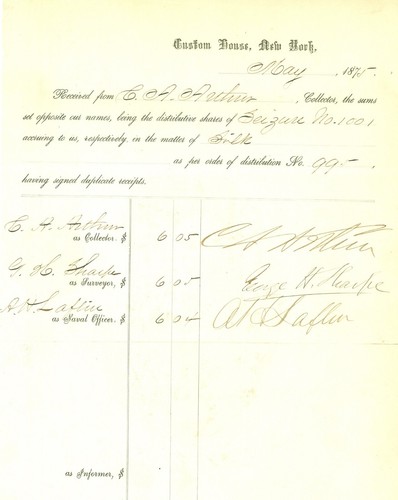 Custom House, New York,
May 1875.
Received from C. A. Arthur, Collector, the sums
set opposite our names, being the distributive shares of Seizure No. 1001
accruing to us, respectively, in the matter of Silk
as per order of distribution No. 995.
having signed duplicate receipts.
C. A. Arthur
as Collector. $ 6 05 C A Arthur
G. H. Sharpe
as Surveyor, $ 6 05 George H. Sharpe
A. H. Laflin
as Naval Officer. $ 6 04 A H Laflin
as Informer, $